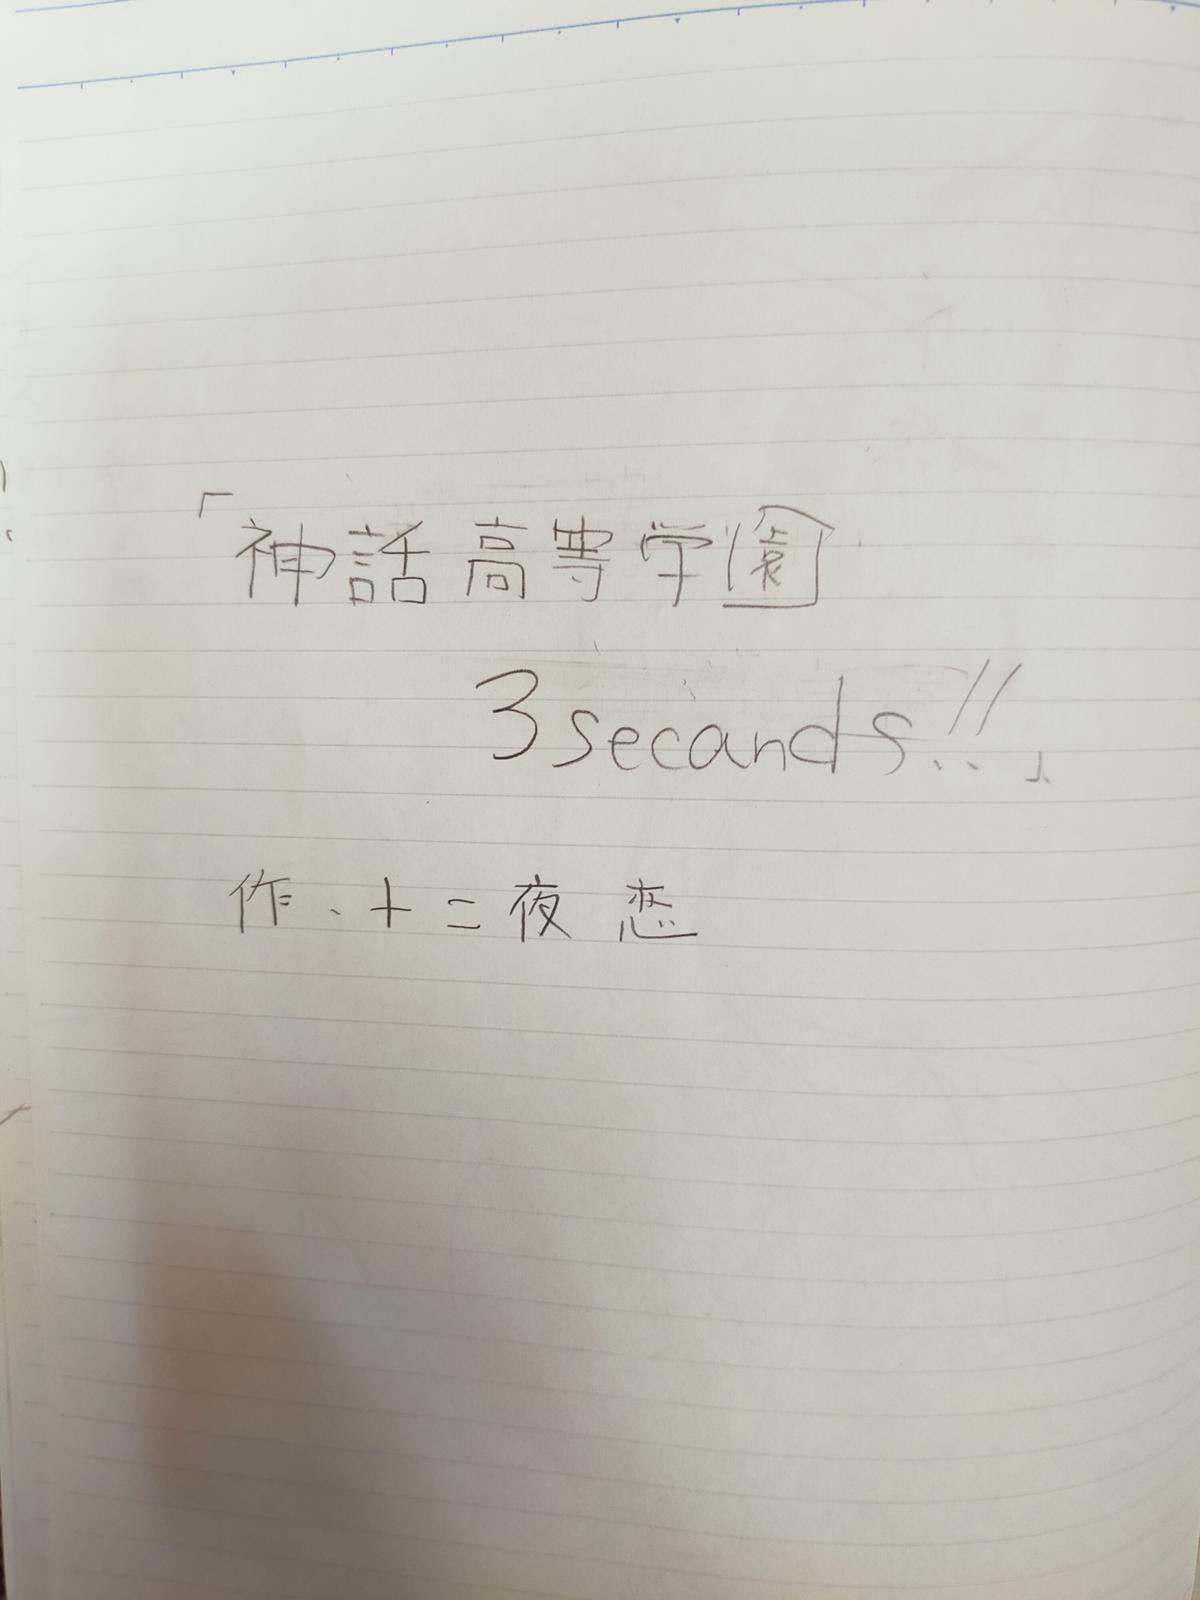 「神話高等学園
3secands!!」
作.十二夜 恋